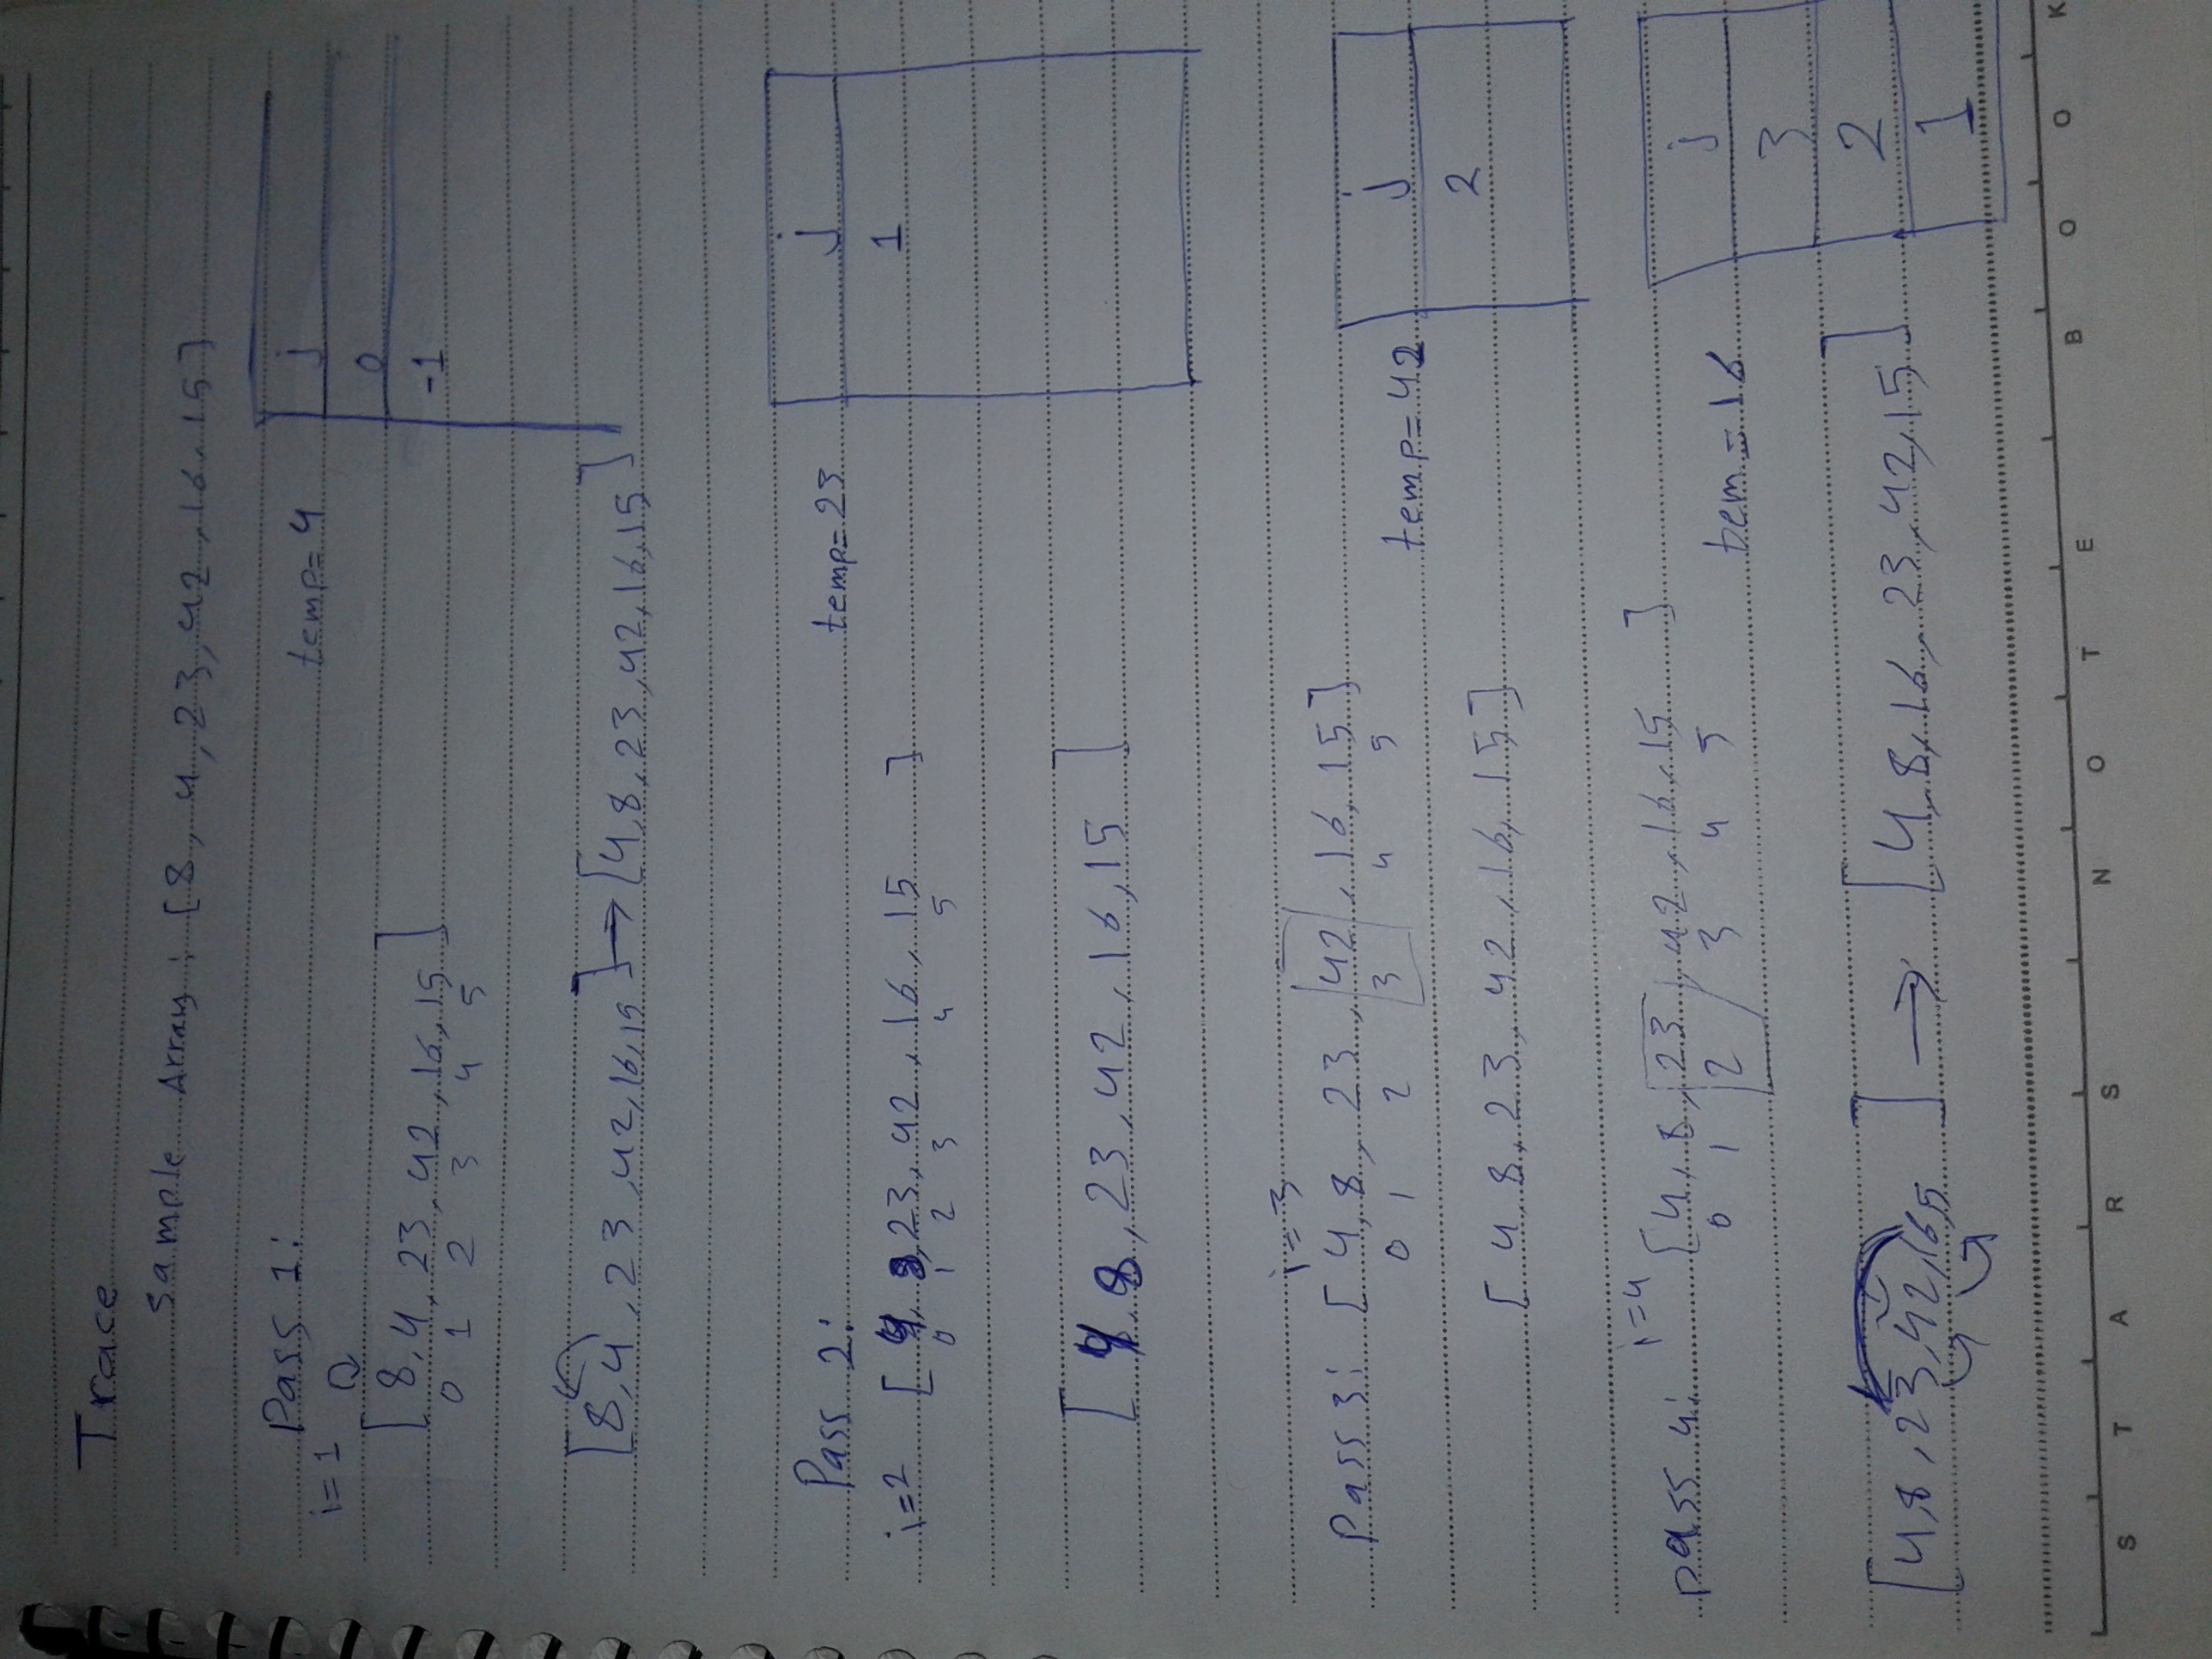 Trace
Sample Array: [8, 4, 23, 42, 16, 15]
Pass 1:
temp=4
j
i=1
0
[8, 4, 23, 42, 16, 15]
-1
0 1 2 3 4 5
[8, 4, 23, 42, 16, 15] → [4, 8, 23, 42, 16, 15]
Pass 2:
temp=23
j
i=2 [4, 8, 23, 42, 16, 15]
1
0 1 2 3 4 5
[4, 8, 23, 42, 16, 15]
i=3
Pass 3: [4, 8, 23, 42, 16, 15]
0 1 2 3 4 5
temp=42
j
2
[4, 8, 23, 42, 16, 15]
i=4
pass 4: [4, 8, 23, 42, 16, 15]
0 1 2 3 4 5
tem=16
j
3
2
[4, 8, 23, 42, 16, 15] → [4, 8, 16, 23, 42, 15]
1
STARS NOTE BOOK